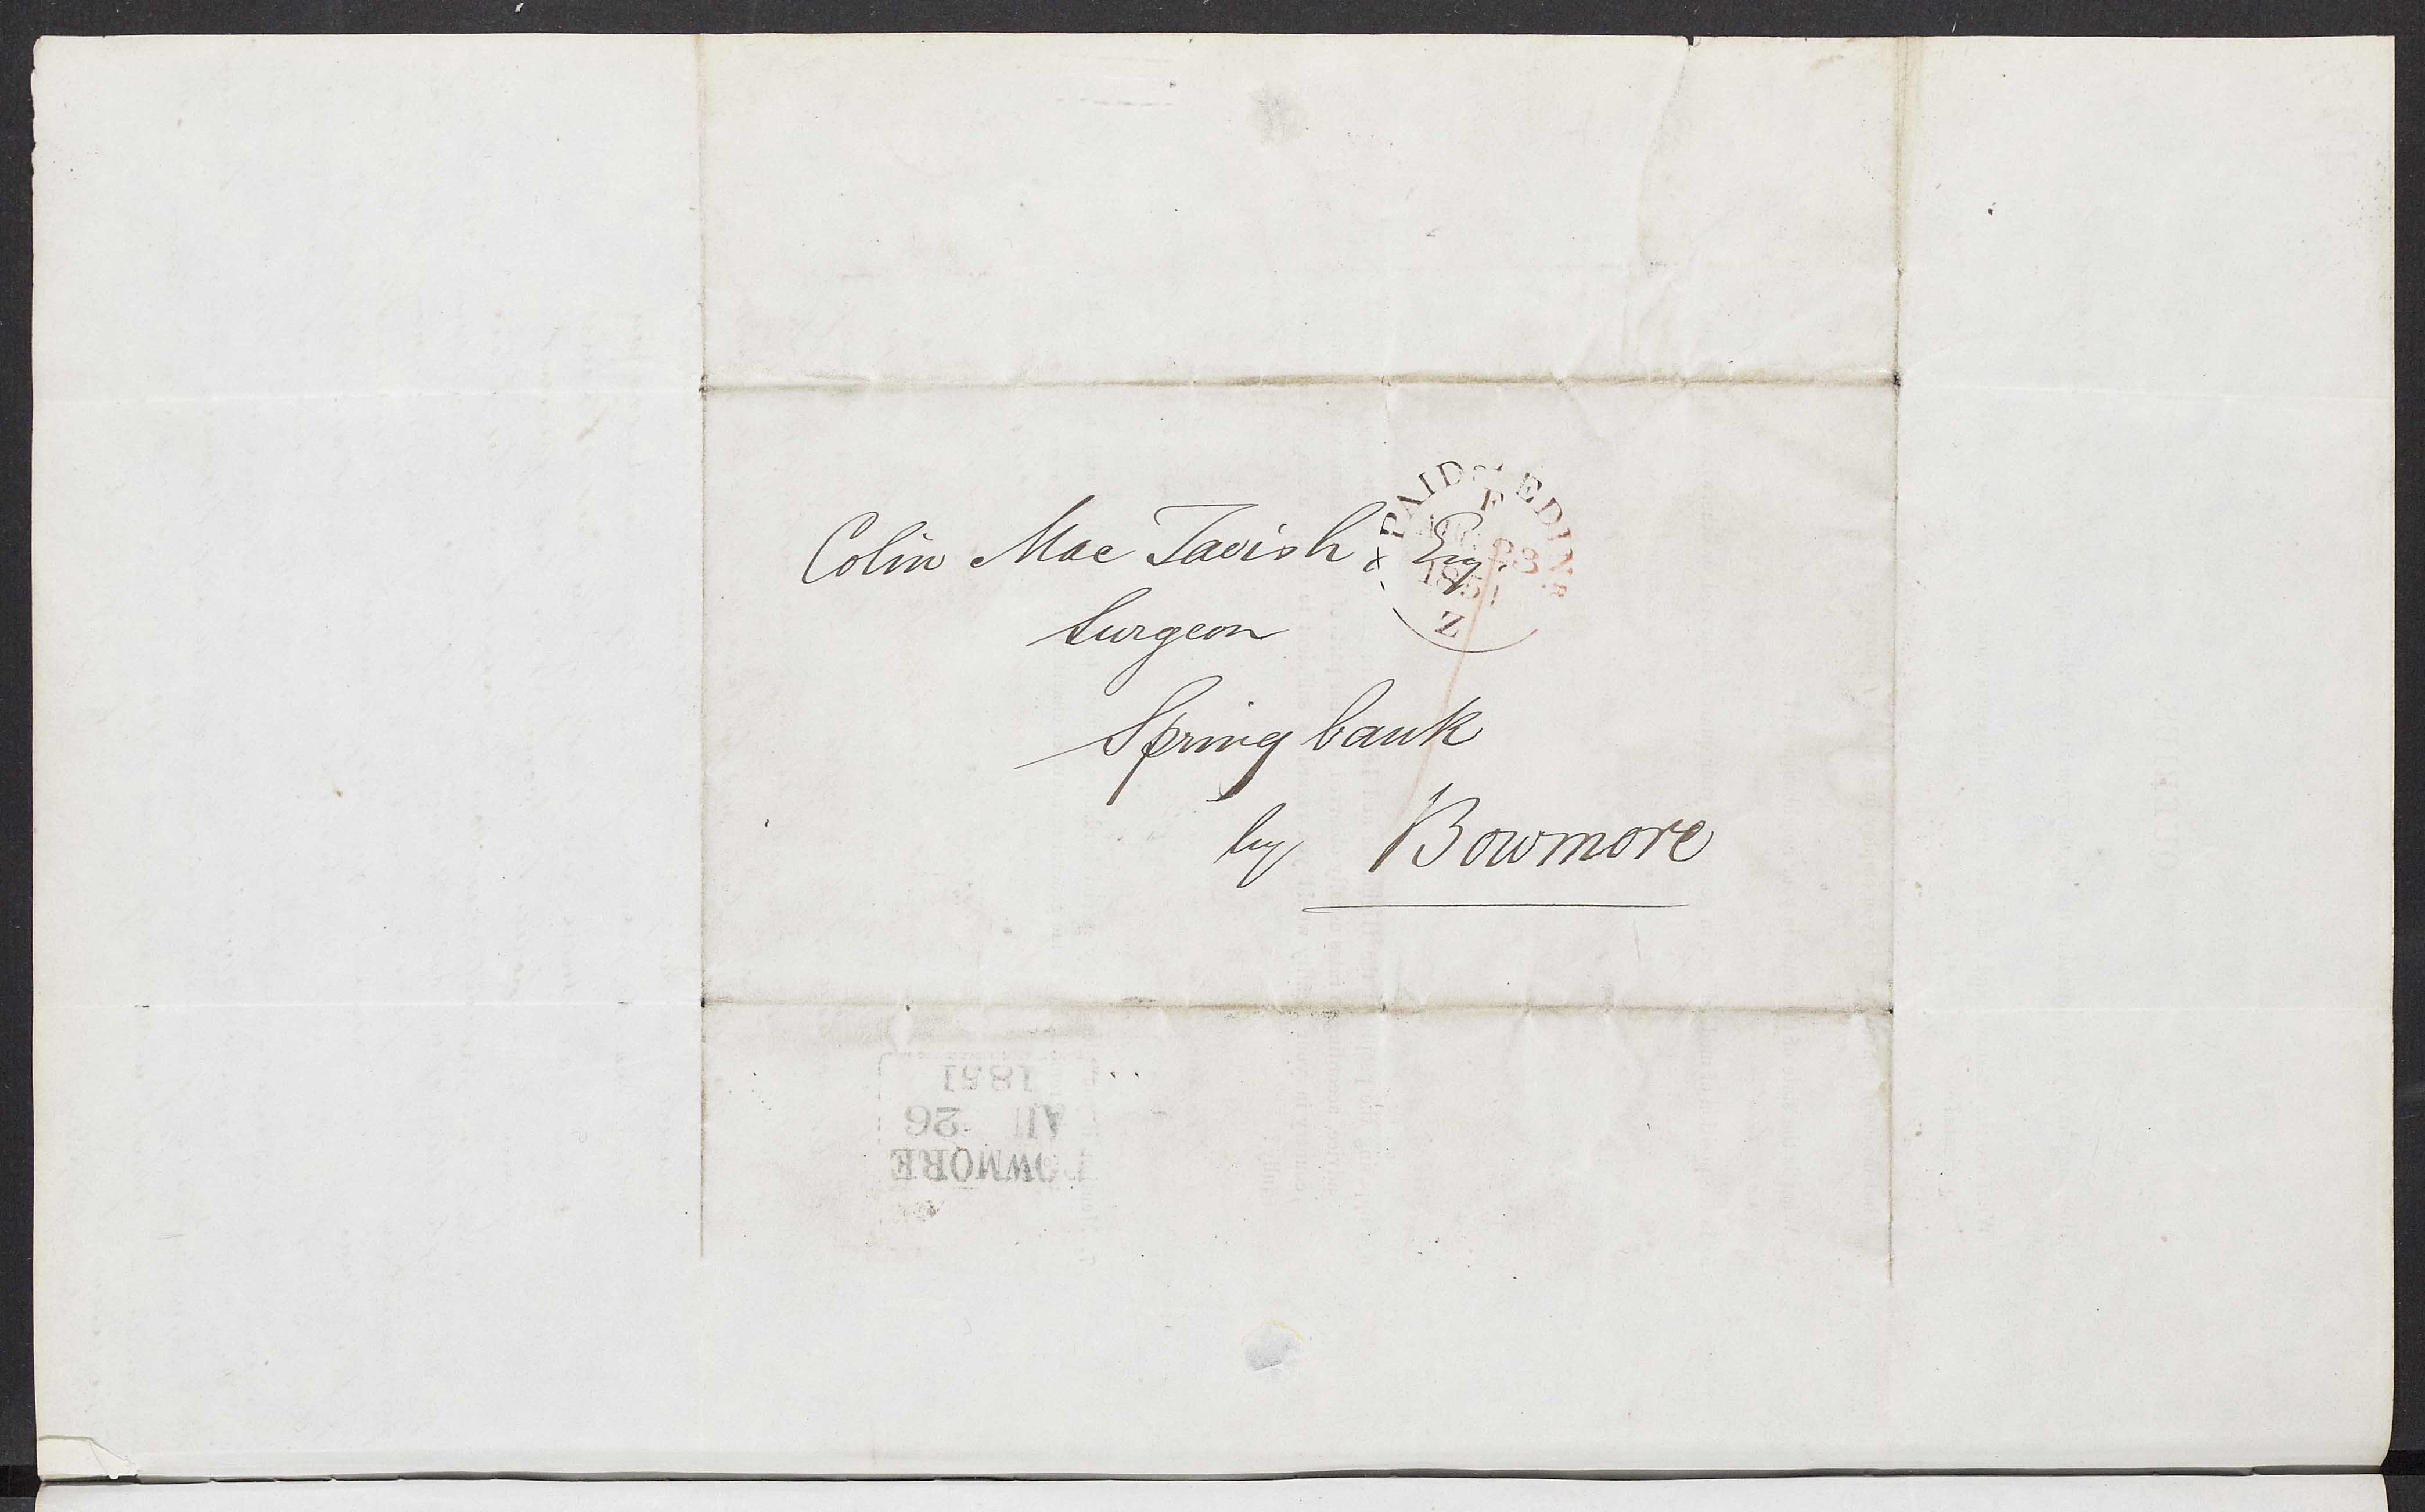 Colin Mac Tavish, Esqr.
Surgeon
Springbank
by Bowmore
PAID EDINR
F
23
1851
Z
BOWMORE
AU 26
1851